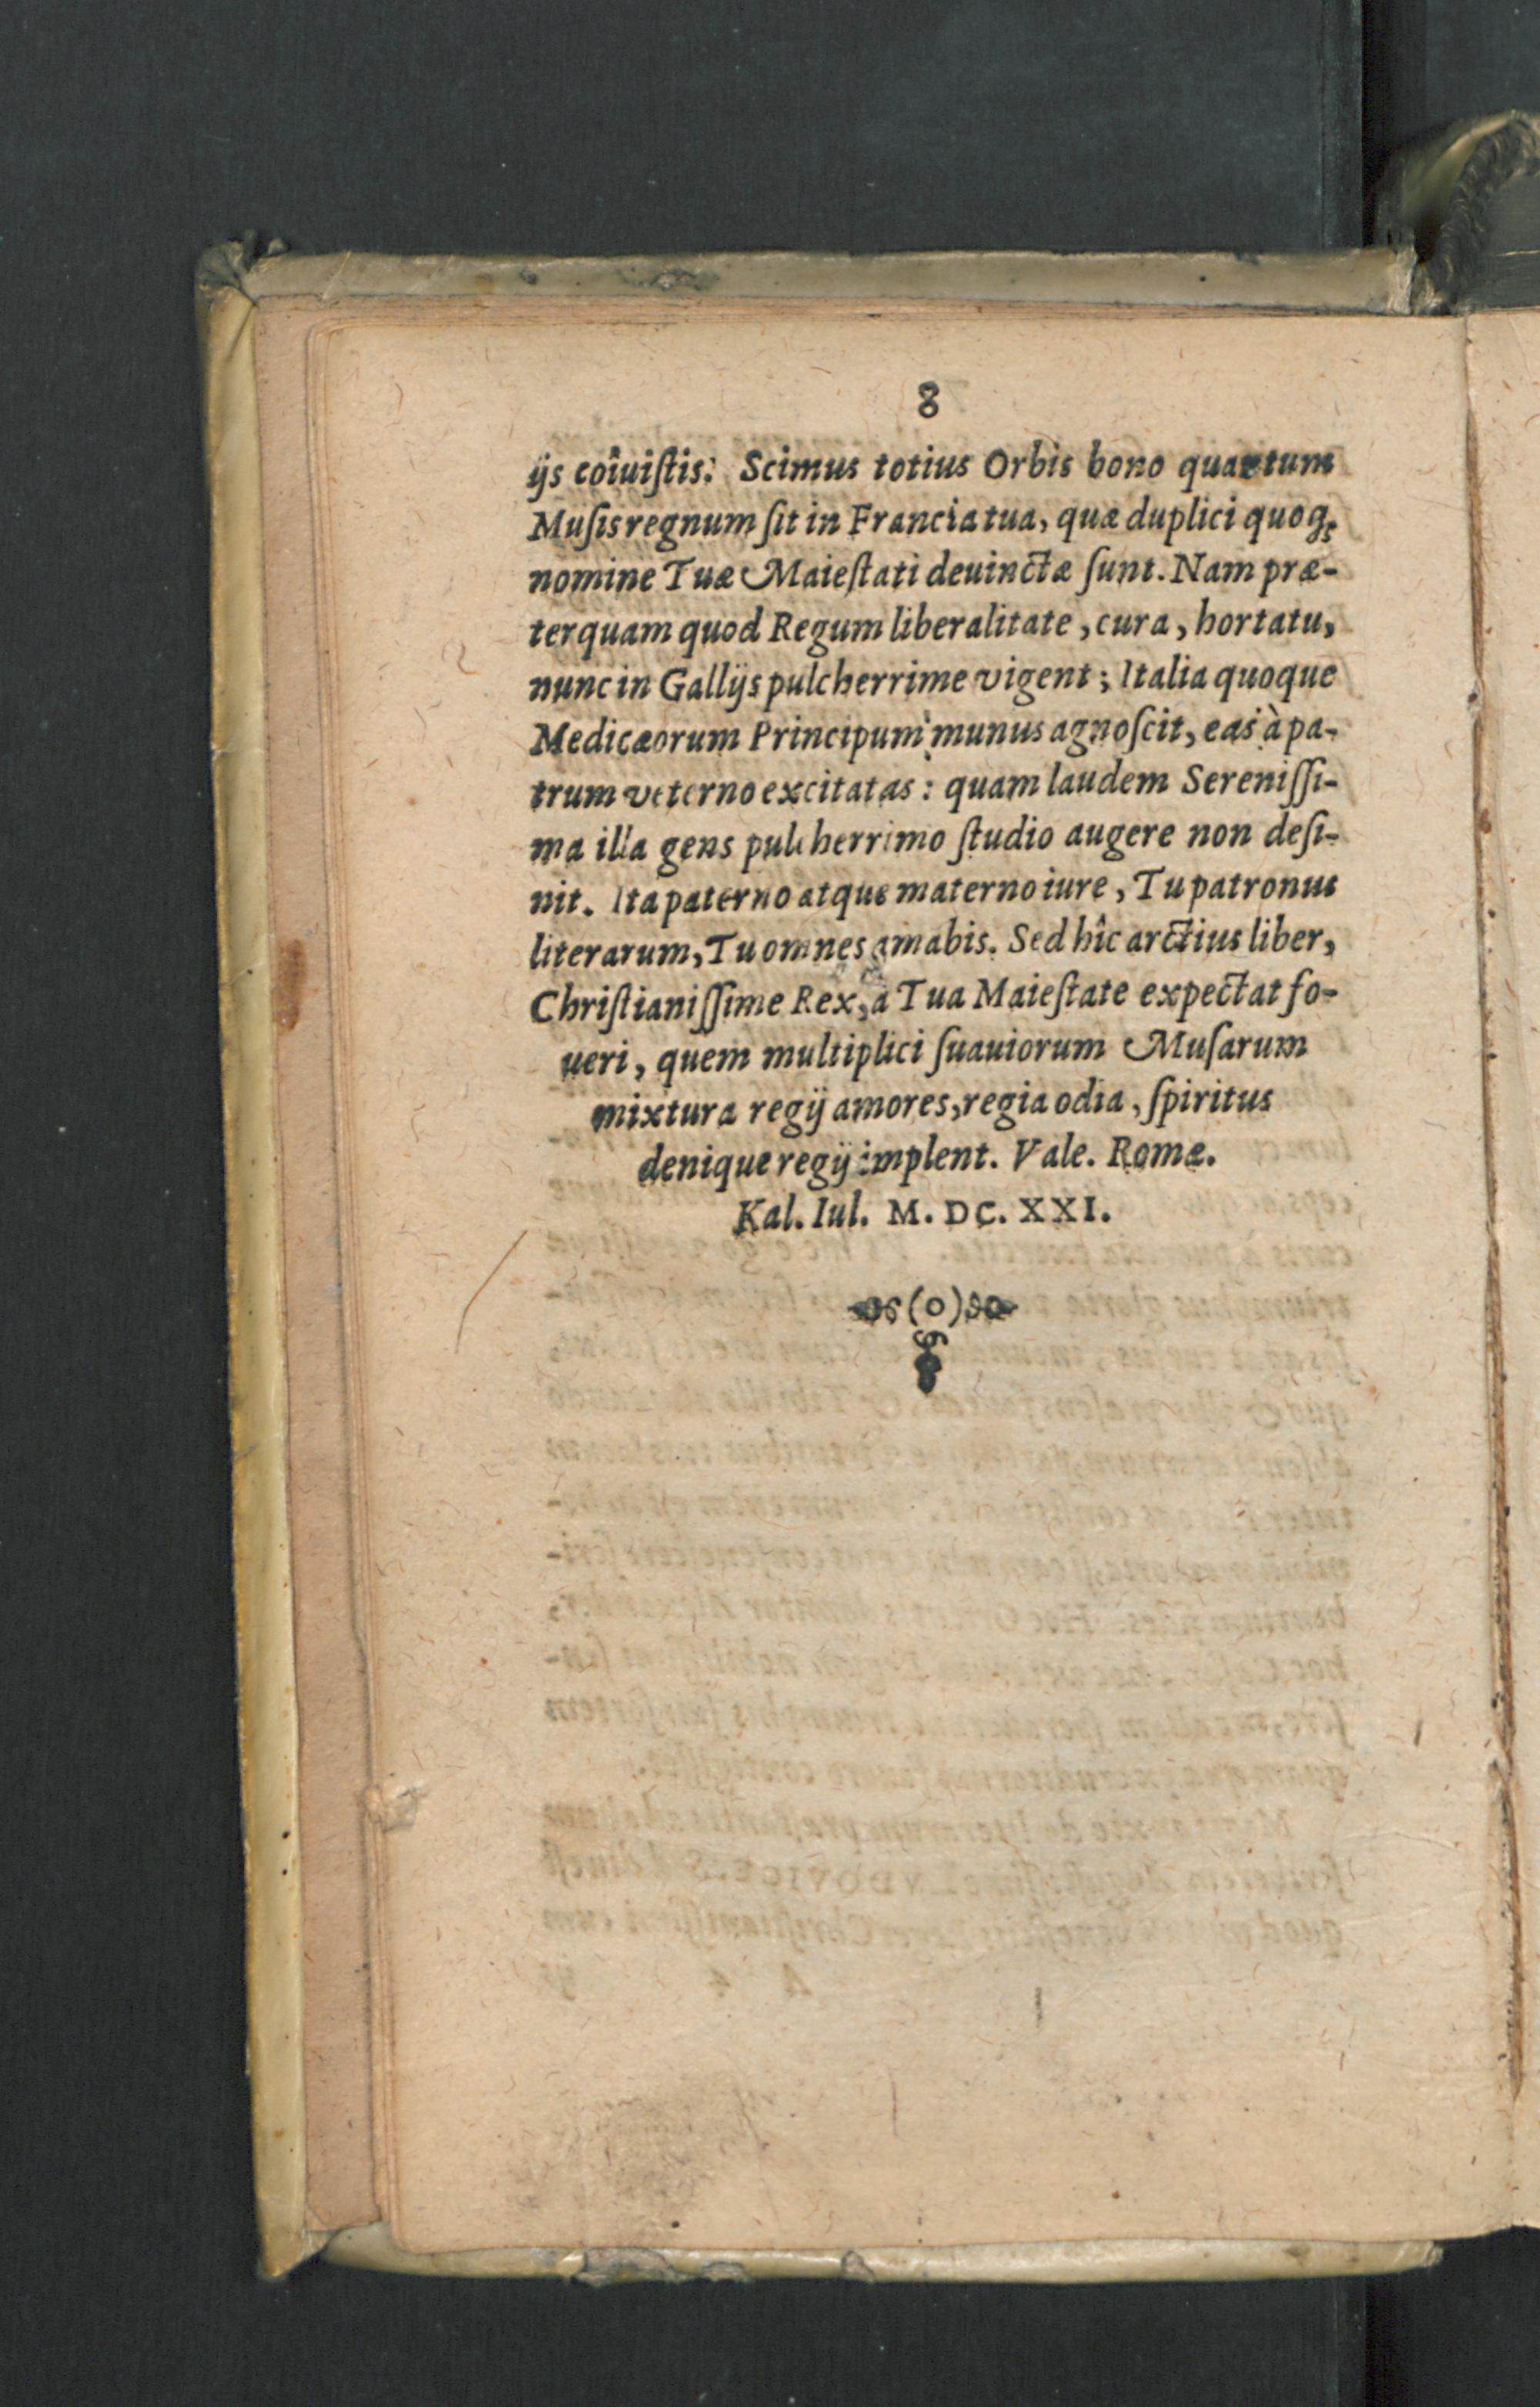 8
ijs coiuiſtis: Scimus totius Orbis bono quantum
Muſis regnum ſit in Francia tua, quæ duplici quoq;
nomine Tuæ Maieſtati deuinctæ ſunt. Nam præ-
terquam quod Regum liberalitate, cura, hortatu,
nunc in Gallijs pulcherrime vigent; Italia quoque
Medicæorum Principum munus agnoſcit, eas à pa-
trum veterno excitatas: quam laudem Sereniſſi-
ma illa gens pulcherrimo ſtudio augere non deſi-
nit. Ita paterno atque materno iure, Tu patronus
literarum, Tu omnes amabis. Sed hîc arctius liber,
Chriſtianiſſime Rex, à Tua Maieſtate expectat fo-
ueri, quem multiplici ſuauiorum Muſarum
mixtura regij amores, regia odia, ſpiritus
denique regij implent. Vale. Romæ.
Kal. Iul. M. DC. XXI.
(o)